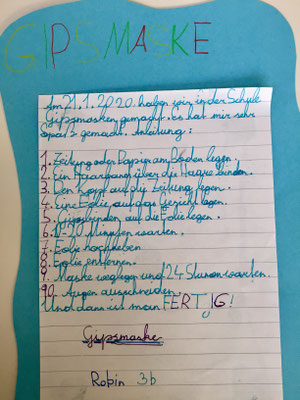 GIPSMASKE
Am 21.1.2020 haben wir in der Schule
Gipsmasken gemacht. Es hat mir sehr
Spaß gemacht. Anleitung:
1. Zeitung oder Papier am Boden legen.
2. Ein Haarband über die Haare binden.
3. Den Kopf auf die Zeitung legen.
4. Eine Folie auf das Gesicht legen.
5. Gipsbinden auf die Folie legen.
6. 10-20 Minuten warten.
7. Folie hochheben
8. Folie entfernen.
9. Maske weglegen und 24 Stunden warten.
10. Augen ausschneiden.
Und dann ist man FERTIG!
Gipsmaske
Robin 3b